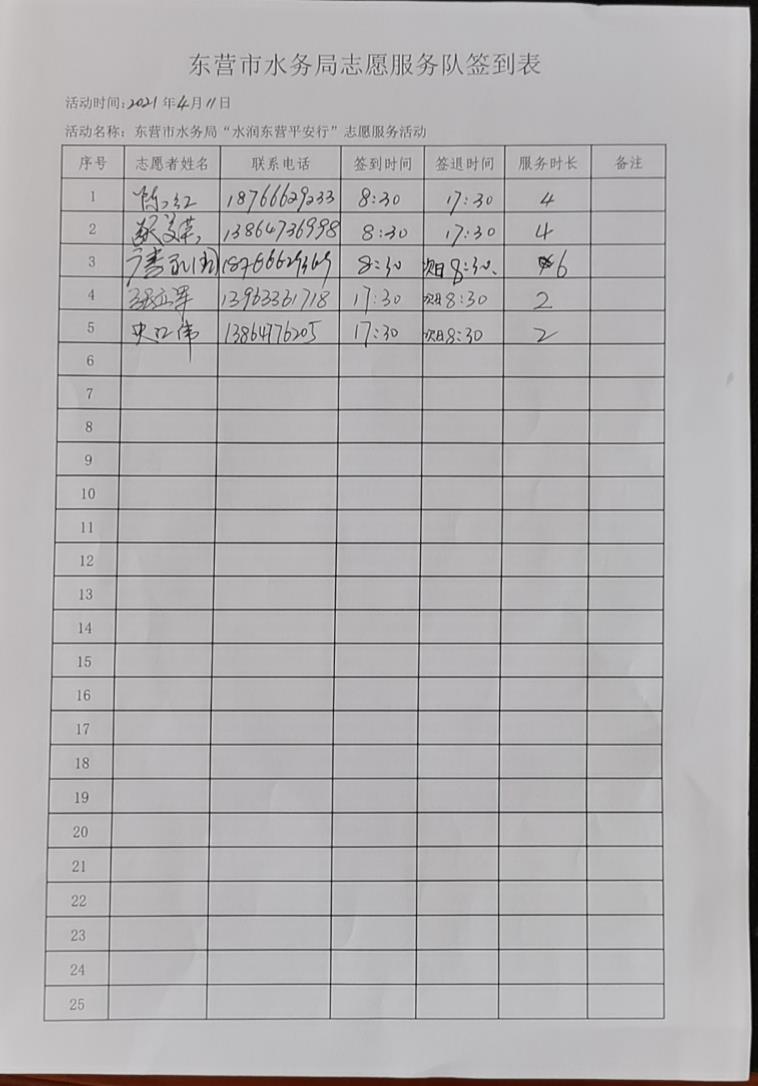 东营市水务局志愿服务队签到表
活动时间:2021年4月11日
活动名称：东营市水务局“水润东营平安行”志愿服务活动
序号 志愿者姓名 联系电话 签到时间 签退时间 服务时长 备注
1 陈红 18766629233 8:30 17:30 4
2 13864736998 8:30 17:30 4
3 8:30 次日8:30. 6
4 张立军 13963361718 17:30 次日8:30 2
5 13864776205 17:30 次日8:30 2
6
7
8
9
10
11
12
13
14
15
16
17
18
19
20
21
22
23
24
25